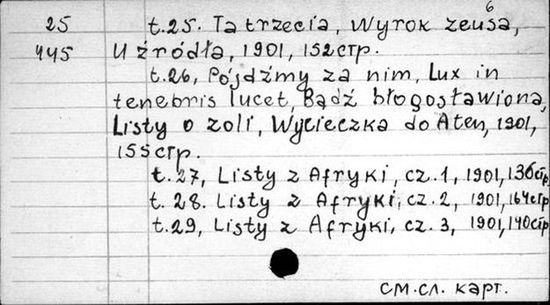 6
25 t.25. Ta trzecia, Wyrok Zeusa,
445 U źródła, 1901, 152стр.
t.26, Pójdźmy za nim, Lux in
tenebris lucet, Bądź błogosławiona,
Listy o Zoli, Wycieczka do Aten, 1901,
155стр.
t.27, Listy z Afryki, cz.1, 1901, 136стр
t. 28. Listy z Afryki, cz. 2, 1901, 164стр
t.29, Listy z Afryki, cz. 3, 1901, 140стр
см.сл. карт.